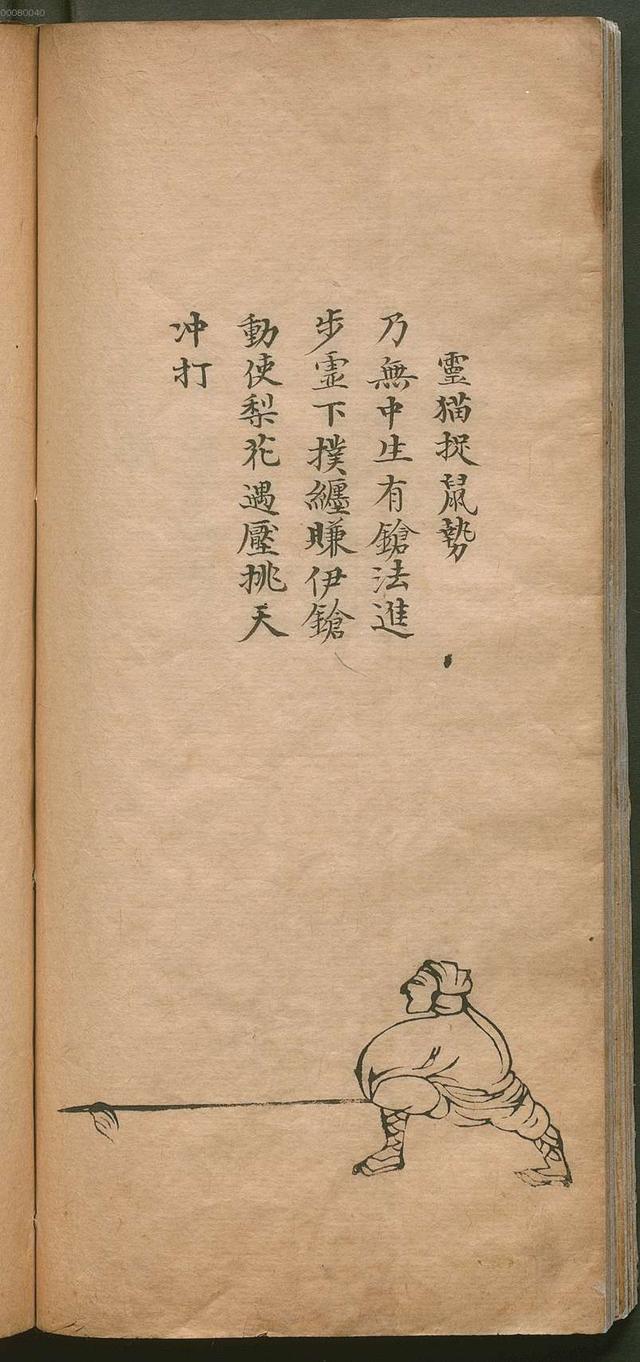 00080040
靈猫捉鼠勢
乃無中生有鎗法進
步虛下撲纏賺伊鎗
動使梨花遇壓挑天
冲打